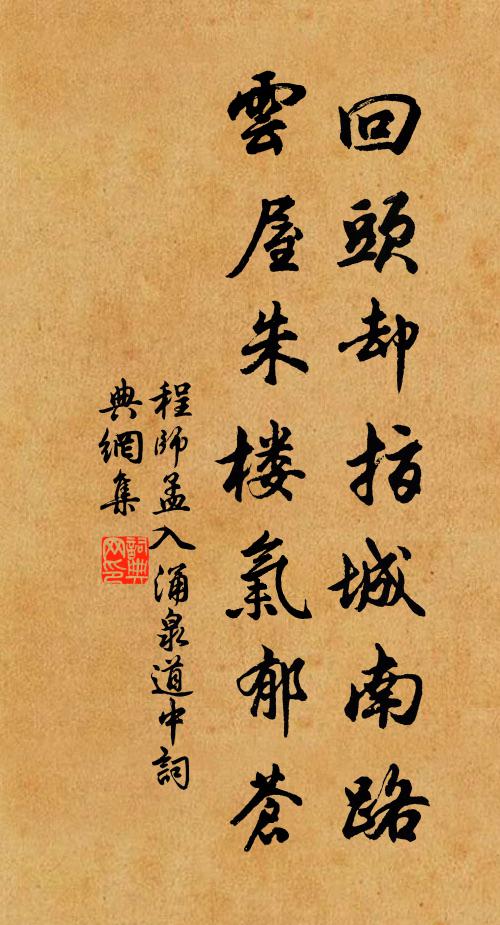 回頭却指城南路
雲屋朱楼氣郁蒼
程師孟入涌泉道中詞
典網集
詞典
网印